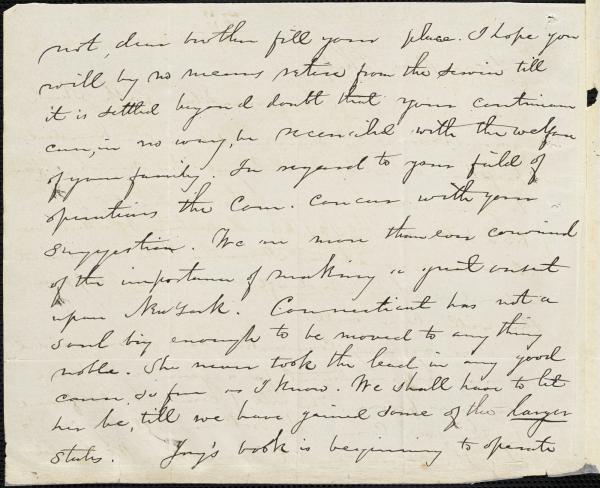 not, dear brother fill your place. I hope you
will by no means retire from the service till
it is settled beyond doubt that your continuance
can, in no way, be reconciled with the welfare
of your family. In regard to your field of
operations the Com. concur with your
suggestion. We are more than ever convinced
of the importance of making a great onset
upon New York. Connecticut has not a
soul big enough to be moved to any thing
noble. She never took the lead in any good
cause, so far as I know. We shall have to let
her be, till we have gained some of the larger
States. Jay's book is beginning to operate